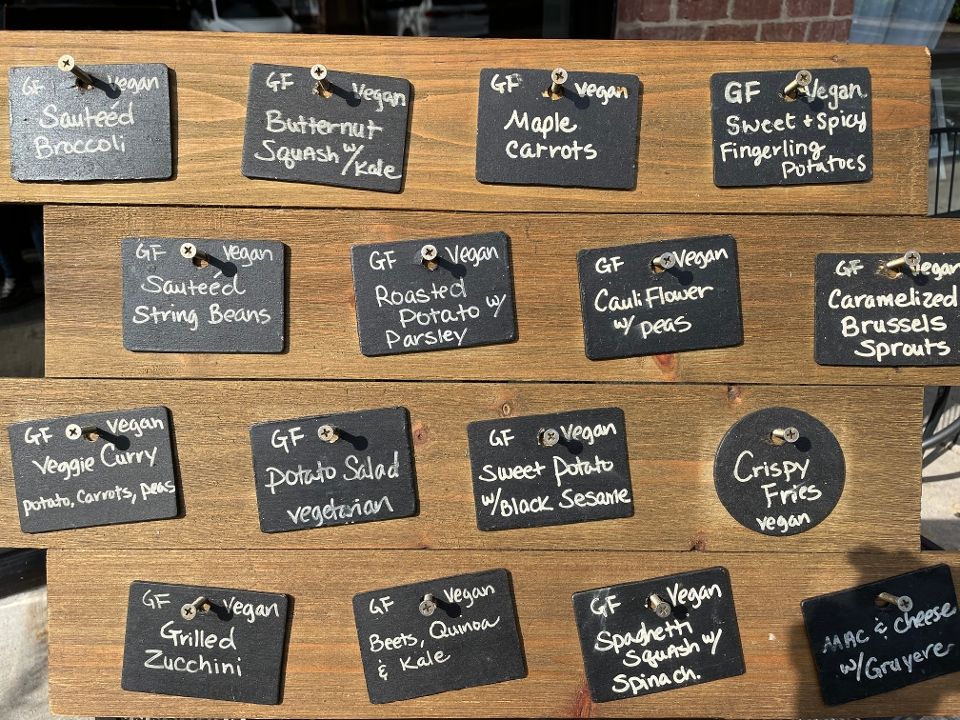 GF Vegan
Sauteéd
Broccoli
GF Vegan
Butternut
Squash w/
Kale
GF Vegan
Maple
Carrots
GF Vegan.
Sweet + Spicy
Fingerling
Potatoes
GF Vegan
Sauteéd
String Beans
GF Vegan
Roasted
Potato w/
Parsley
GF Vegan
Cauliflower
w/ peas
GF Vegan
Caramelized
Brussels
Sprouts
GF Vegan
Veggie Curry
Potato, Carrots, peas
GF
Potato Salad
vegetarian
GF Vegan
Sweet Potato
w/Black Sesame
Crispy
Fries
vegan
GF Vegan
Grilled
Zucchini
GF Vegan
Beets, Quinoa
& Kale
GF Vegan
Spaghetti
Squash w/
Spinach.
MAC & Cheese
w/Gruyere